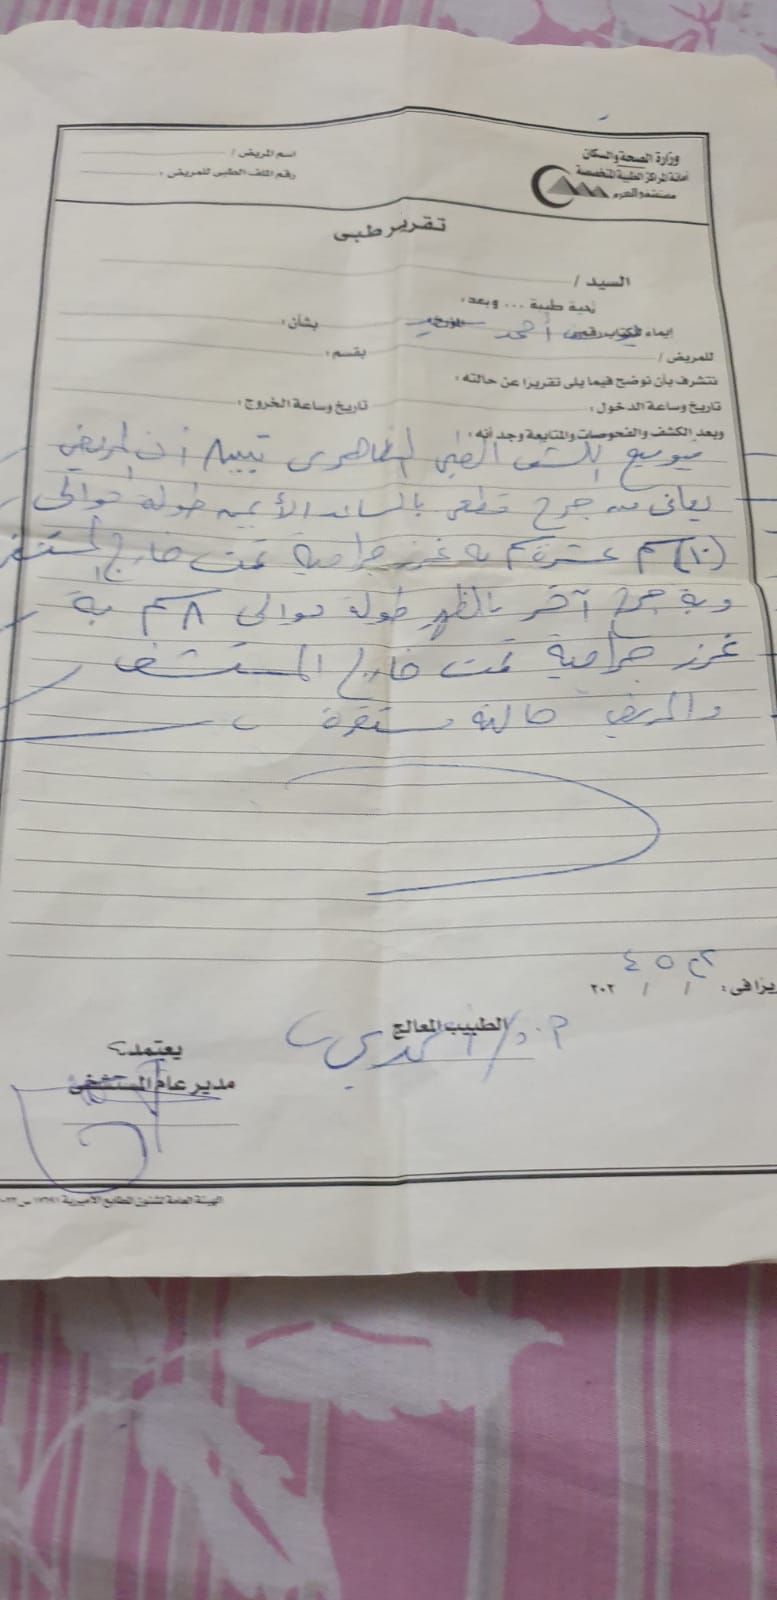 وزارة الصحة والسكان
أمانة المراكز الطبية المتخصصة
مستشفى الهرم
اسم المريض /
رقم الملف الطبى للمريض :
تقرير طبى
السيد /
تحية طيبة ... وبعد ،
إيماء للكتاب رقم أحمد المؤرخ بشأن :
للمريض / بقسم :
نتشرف بأن نوضح فيما يلى تقريرا عن حالته :
تاريخ وساعة الدخول : تاريخ وساعة الخروج :
وبعد الكشف والفحوصات والمتابعة وجد أنه :
بتوقيع الكشف الطبي الظاهري تبين أن المريض
يعاني من جرح قطعي بالساعد الأيمن طوله حوالي
(١٠) سم عشرة سم به غرز جراحية تمت خارج المستشفى
وبه جرح آخر بالظهر طوله حوالي ٨ سم به
غرز جراحية تمت خارج المستشفى
والمريض حالته مستقرة
/ / ٢٠٢
الطبيب المعالج
يعتمد ،
مدير عام المستشفى
الهيئة العامة لشئون المطابع الأميرية